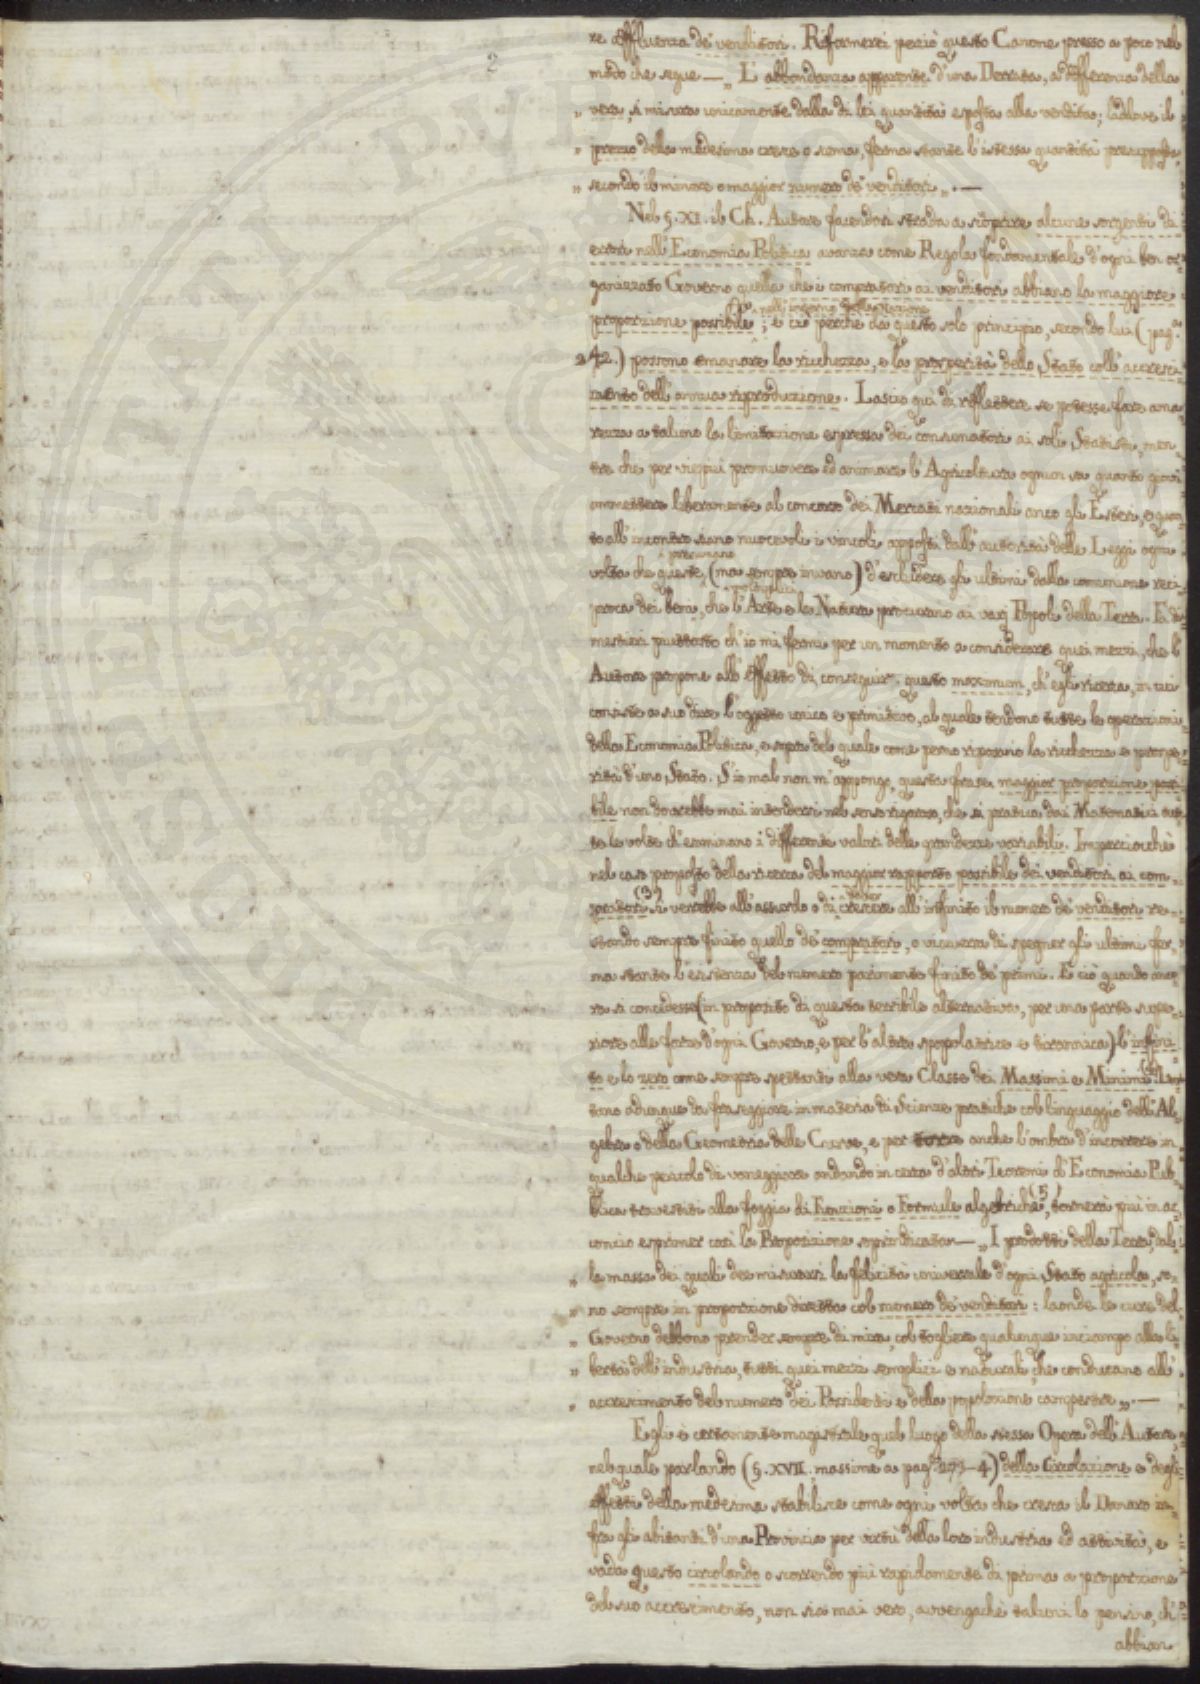 2
re affluenza de' venditori. Riformerei perciò questo Canone presso a poco nel
modo che segue — „ L'abbondanza apparente d'una Derrata, a differenza della
„ vera, si misura unicamente dalla di lei quantità esposta alla vendita; laddove il
„ prezzo della medesima cresce o scema, ferma stante l'istessa quantità presupposta
„ secondo il minore o maggior numero de' venditori „. —
Nel §. XI. il Ch. Autore facendosi strada a scoprire alcune sorgenti di
errori nell'Economia Politica avanza come Regola fondamentale d'ogni ben or-
ganizzato Governo quella che i compratori ai venditori abbiano la maggiore
nell'interno della Nazione
proporzione possibile; e ciò perchè da questo solo principio, secondo lui (pag.ª
242.) possono emanare la ricchezza, e la prosperità dello Stato coll'accresci-
mento dell'annua riproduzione. Lascio qui di riflettere se potesse fare ama-
rezza a taluno la limitazione espressa dei consumatori ai soli Statisti, men-
tre che per vieppiù promuovere ed animare l'Agricoltura ognun sa quanto giovi
ammettere liberamente al concorso dei Mercati nazionali anco gli Esteri, e quan-
to all'incontro siano nuocevoli i vincoli apposti dall'autorità delle Leggi ogni
volta che queste (ma sempre invano) d'escludere gli ultimi dalla comunione reci-
proca dei beni, che l'Arte e la Natura procurano ai varj Popoli della Terra. È di
mestieri piuttosto ch'io mi fermi per un momento a considerare quei mezzi, che l'
Autore propone all'effetto di conseguir questo maximum, ch'egli ricerca, in cui
consiste a suo dire l'oggetto unico e primitivo, al quale tendono tutte le operazioni
della Economia Politica, e sopra del quale come perno riposano la ricchezza e prospe-
rità d'uno Stato. S'io mal non m'appongo, questa frase maggior proporzione possi-
bile non dovrebbe mai intendersi nel senso rigoroso, che si pratica dai Matematici tut-
te le volte ch'esaminano i differenti valori delle grandezze variabili. Imperciocchè
nel caso proposto della ricerca del maggior rapporto possibile dei venditori ai com-
pratori (3) si verrebbe all'assurdo o di crescere all'infinito il numero de' venditori re-
stando sempre finito quello de' compratori, o viceversa di spegner gli ultimi fer-
ma stante l'esistenza del numero parimente finito de' primi. E ciò quando anco-
ra si concedesse (in proposito di questa terribile alternativa, per una parte supe-
riore alle forze d'ogni Governo, e per l'altra spopolatrice e tirannica) l'infini-
to e lo zero come sempre spettanti alla vera Classe dei Massimi e Minimi (4). Lon-
tano adunque da fraseggiare in materia di Scienze pratiche col linguaggio dell'Al-
gebra o della Geometria delle Curve, e per torre anche l'ombra d'incorrere in
qualche pericolo di vaneggiare andando in cerca d'altri Teoremi d'Economia Pub-
blica travestiti alla foggia di Funzioni o Formule algebriche (5), tornerà più in ac-
concio esprimer così la Proposizione sopraindicata — „ I prodotti della Terra, dal-
„ la massa dei quali dee misurarsi la felicità universale d'ogni Stato agricola, so-
„ no sempre in proporzione diretta col numero de' venditori: laonde le cure del
„ Governo debbono prender sempre di mira, col togliere qualunque inciampo alla li-
„ bertà dell'industria, tutti quei mezzi semplici e naturali, che conducano all'
„ accrescimento del numero dei Possidenti e della popolazione campestre „. —
Egli è certamente magistrale quel luogo della stessa Opera dell'Autore,
nel quale parlando (§. XVII. massime a pag.ª 273-4) della Circolazione e degli
effetti della medesima stabilisce come ogni volta che cresca il Danaro in-
fra gli abitanti d'una Provincia per virtù della loro industria ed attività, e
vada questo circolando o scorrendo più rapidamente di prima a proporzione
del suo accrescimento, non sia mai vero, avvengachè taluni lo pensino, ch'
abbian